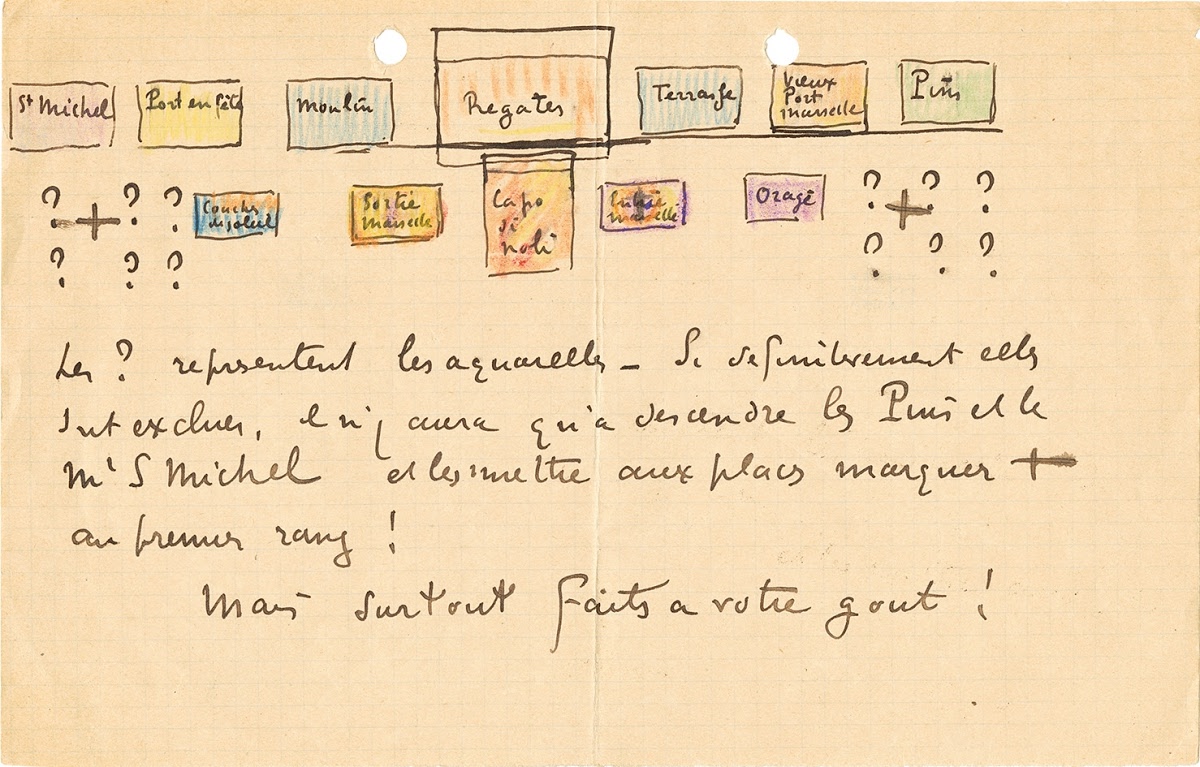 St Michel Port en fête Moulin Regates Terrasse Vieux Port marseille Pins
? ? ? + Coucher de soleil Sortie Marseille Capo di noli Entrée marseille Orage ? + ? ?
? ? ? ? ? ?
Les ? representent les aquarelles – Si definitivement elles
sont exclues, il n'y aura qu'a descendre les Pins et le
Mt S Michel et les mettre aux places marquer +
au premier rang !
Mais surtout faits a votre gout !